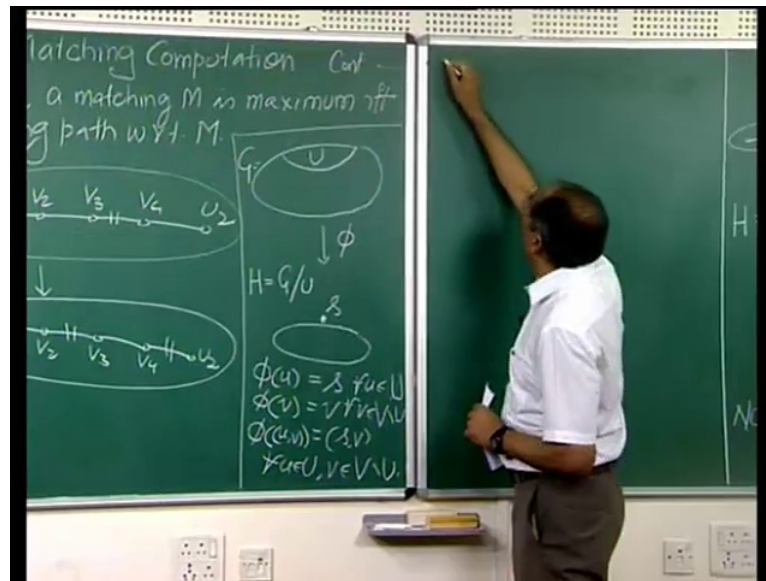 Matching Computation Cont
a matching M is maximum iff
path w.r.t. M.
V2 V3 V4 U2
V2 V3 V4 U2
G= U
↓ φ
H = G/U
s
φ(u) = s ∀u∈U
φ(v) = v ∀v∈V\U
φ(u,v) = (s,v)
∀u∈U, v∈V\U.
H=